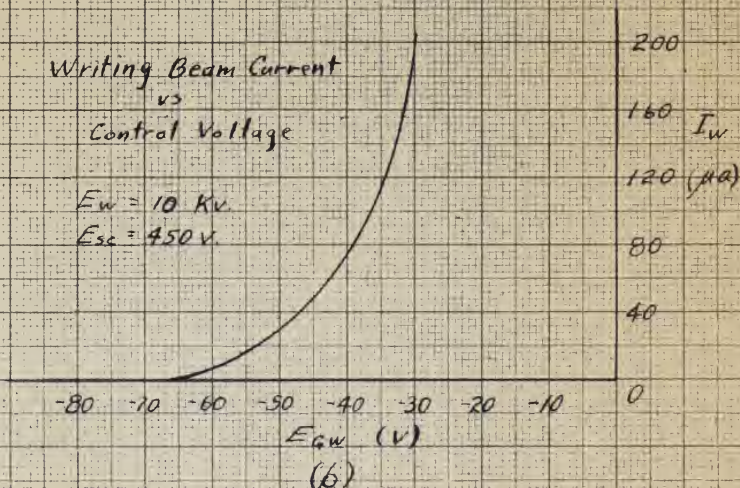 Writing Beam Current
vs
Control Voltage
Ew = 10 Kv.
Esc = 450 V.
200
160
Iw
120 (μa)
80
40
0
-80 -70 -60 -50 -40 -30 -20 -10
EGW (V)
(b)